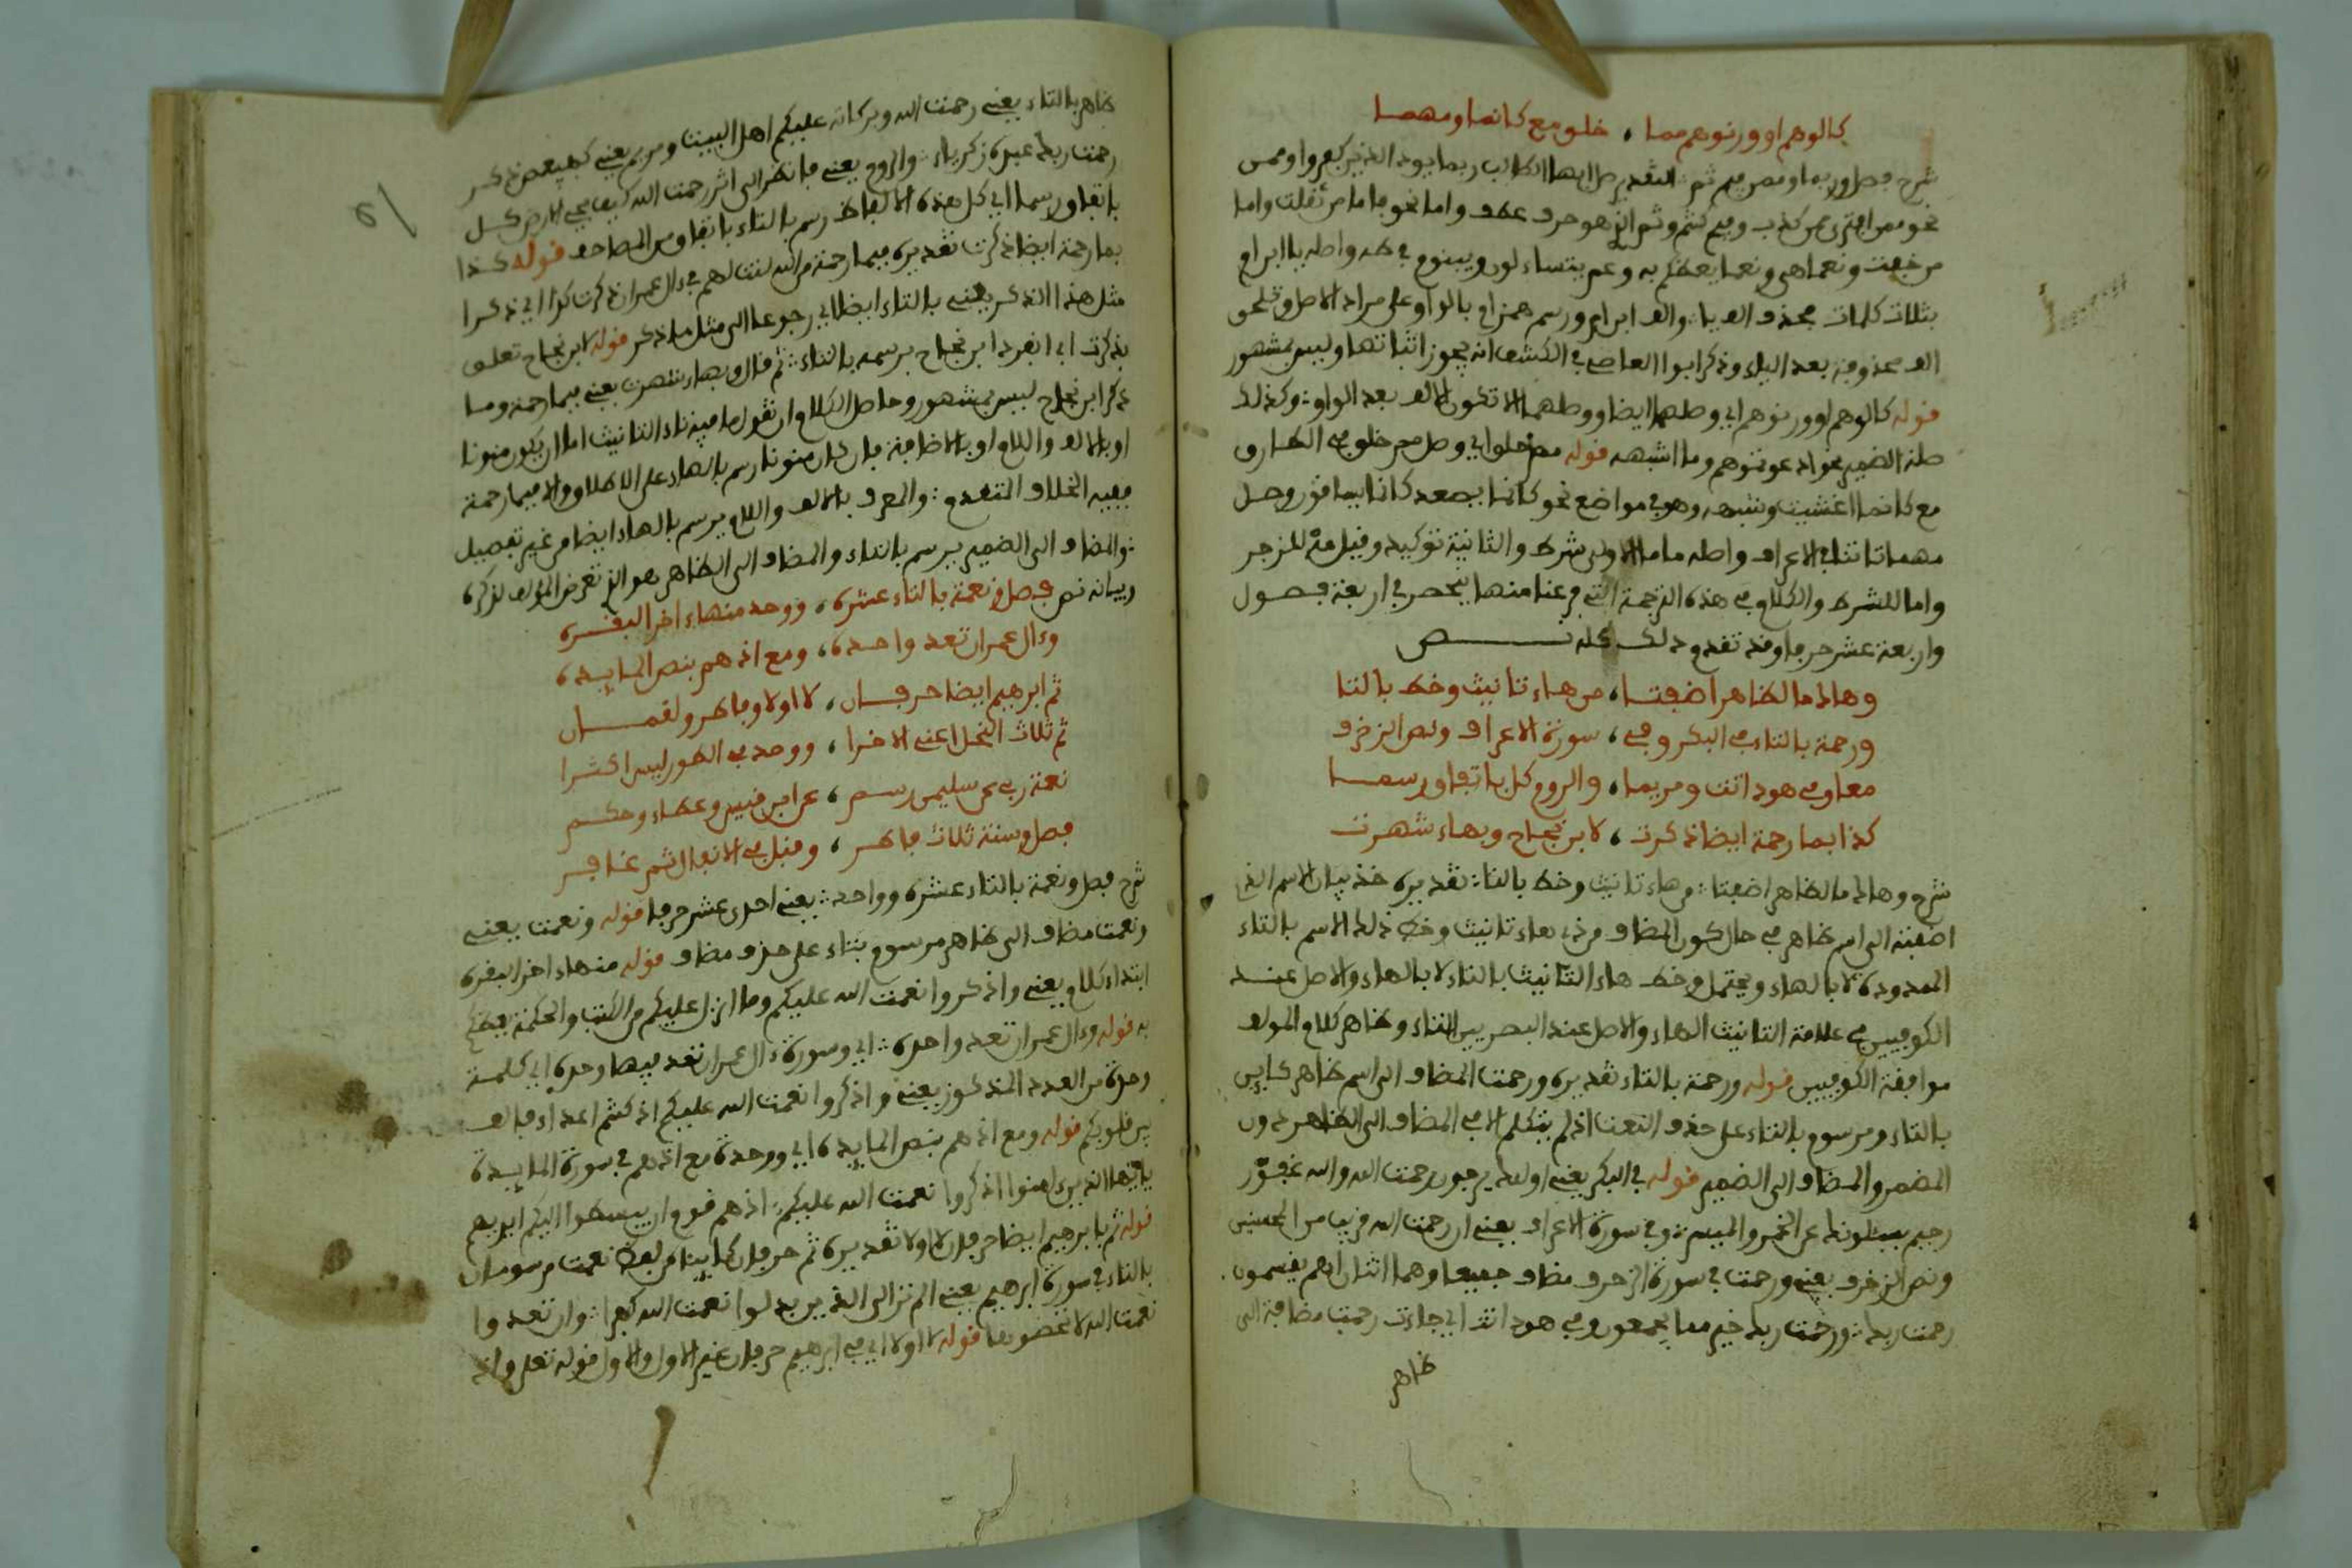 كالوهم او وزنوهم مما ، خلق مع كانما ومهما
شرح فصل وربما وممن فيم ثم :: التقدير صل ايها الطالب ربما يود الذين كفروا وممن
نحو ممن افترى ممن كذب وفيم كنتم وثم الذي هو حرف عطف واما نحو فاما من ثقلت واما
من خفت ونعما هي ونعما يعظكم به وعم يتساءلون ويبنوم في طه واصله يا ابن ام
بثلاث كلمات بحذف الف يا :: والف ابن ام ورسم همز ام بالواو على مراد الاصل وتلحق
الف محذوفة بعد الياء وذكر ابوا العاصي في الكشف انه يجوز اثباتها وليس بمشهور
قوله كالوهم او وزنوهم اي وصلهما ايضا ووصلهما الا تكون الالف بعد الواو :: وكذلك
صلة الضمير نحو ادعوتموهم وما اشبهه قوله مم خلق اي وصل مم خلق في الطارق
مع كانما اغشيت وشبهه وهو في مواضع نحو كانما يصعد كانما يساقون وصل
مهما تاتنا في الاعراف واصله ما ما الاولى شرط والثانية توكيد وقيل مه للزجر
واما للشرط والكلام في هذه الترجمة التي فرغنا منها ينحصر في اربعة فصول
واربعة عشر حرفا وقد تقدم ذلك كله نص
وهاك ما لظاهر اضفتا ، من هاء تانيث وخط بالتا
ورحمة بالتاء في البكر وفي ، سورة الاعراف ونص الزخرف
معا وفي هود اتت ومريما ، والروم كل باتفاق رسما
كذا بما رحمة ايضا ذكرت ، لابن نجاح وبهاء شهرت
شرح وهاك ما لظاهر اضفتا :: من هاء تانيث وخط بالتا :: تقديره خذ بيان الاسم الذي
اضفته الى اسم ظاهر في حال كون المضاف من ذي هاء تانيث وخط ذلك الاسم بالتاء
الممدودة لا بالهاء ويحتمل وخط هاء التانيث بالتاء لا بالهاء والاصل عند
الكوفيين في علامة التانيث الهاء والاصل عند البصريين التاء وظاهر كلام المولف
موافقة الكوفيين قوله ورحمة بالتاء تقديره ورحمت المضاف الى اسم ظاهر كاين
بالتاء ومرسوم بالتاء على حذف النعت اذ لم يتكلم الا في المضاف الى الظاهر دون
المضمر والمضاف الى الضمير قوله في البكر يعني اولئك يرجون رحمت الله والله غفور
رحيم يسئلونك عن الخمر والميسر :: وفي سورة الاعراف يعني ان رحمت الله قريب من المحسنين
ونص الزخرف يعني ورحمت في سورة الزخرف مضاف جميعا وهما اثنان اهم يقسمون
رحمت ربك :: ورحمت ربك خير مما يجمعون وفي هود اتت اي جاءت رحمت مضافة الى
ظاهر
ظاهر بالتاء يعني رحمت الله وبركاته عليكم اهل البيت ومريم يعني كهيعص ذكر
رحمت ربك عبده زكرياء :: والروم يعني فانظر الى اثر رحمت الله كيف يحي الارض كل
باتفاق رسما اي كل هذه الالفاظ رسم بالتاء باتفاق من المصاحف قوله كذا
بما رحمة ايضا ذكرت تقديره فبما رحمة من الله لنت لهم في ءال عمران ذكرت كذا اي ذكرا
مثل هذا الذكر يعني بالتاء ايضا اي رجوعا الى مثل ما ذكر قوله لابن نجاح تعلق
بذكرت اي انفرد ابن نجاح برسمه بالتاء :: ثم قال وبهاء شهرت يعني فبما رحمة وما
ذكر ابن نجاح ليس بمشهور وحاصل الكلام ان تقول ما فيه تاء التانيث اما ان يكون منونا
او بالالف واللام او بالاضافة فان كان منونا رسم بالهاء على الاطلاق والا فبما رحمة
ففيه الخلاف المتقدم :: والمعرف بالالف واللام يرسم بالهاء ايضا من غير تفصيل
:: والمضاف الى الضمير يرسم بالتاء والمضاف الى الظاهر هو الذي تعرض المؤلف لذكره
وبيانه نص فصل ونعمة بالتاء عشره ، وواحد منها ءاخر البقره
وءال عمران تعد واحده ، ومع اذ هم بنص المايده
ثم ابرهيم ايضا حرفان ، لا اولا وفاطر ولقمان
ثم ثلاث النحل اعني الاخرا ، وواحد في الطور ليس اكثرا
نعمة ربي عن سليمن رسم ، عن ابن قيس وعطاء وحكم
فصل وسنة ثلاث فاطر ، وقبل في الانفال ثم غافر
شرح فصل ونعمة بالتاء عشره وواحد :: يعني احدى عشر حرفا قوله ونعمت يعني
ونعمت مضاف الى ظاهر مرسوم بتاء على حذف مضاف قوله منها ءاخر البقره
ابتداء كلام يعني واذكروا نعمت الله عليكم وما انزل عليكم من الكتب والحكمة يعظكم
به قوله وءال عمران تعد واحده :: اي وسورة ءال عمران تعد فيها وحدة اي كلمة
وحدة من العدد المذكور يعني واذكروا نعمت الله عليكم اذ كنتم اعداء فالف
بين قلوبكم قوله ومع اذ هم بنص المايده اي ووحدة مع اذ هم في سورة المايدة
يايها الذين ءامنوا اذكروا نعمت الله عليكم :: اذ هم قوم ان يبسطوا اليكم ايديهم
قوله ثم بابرهيم ايضا حرفان لا اولا تقديره ثم حرفان كاينان من لفظ نعمت مرسومان
بالتاء في سورة ابرهيم يعني الم تر الى الذين بدلوا نعمت الله كفرا :: وان تعدوا
نعمت الله لا تحصوها قوله لا اولا اي في ابرهيم حرفان غير الاول والاول قوله تعلى واذ